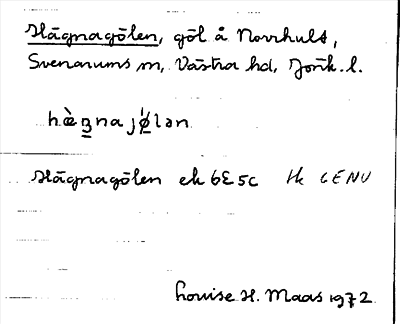 Hägnagölen, göl å Norrhult,
Svenarums sn, Västra hd, Jönk. l.
hæ̀ŋnajø̀lən
Hägnagölen ek 6E 5c Hk GENU
Louise H. Maas 1972